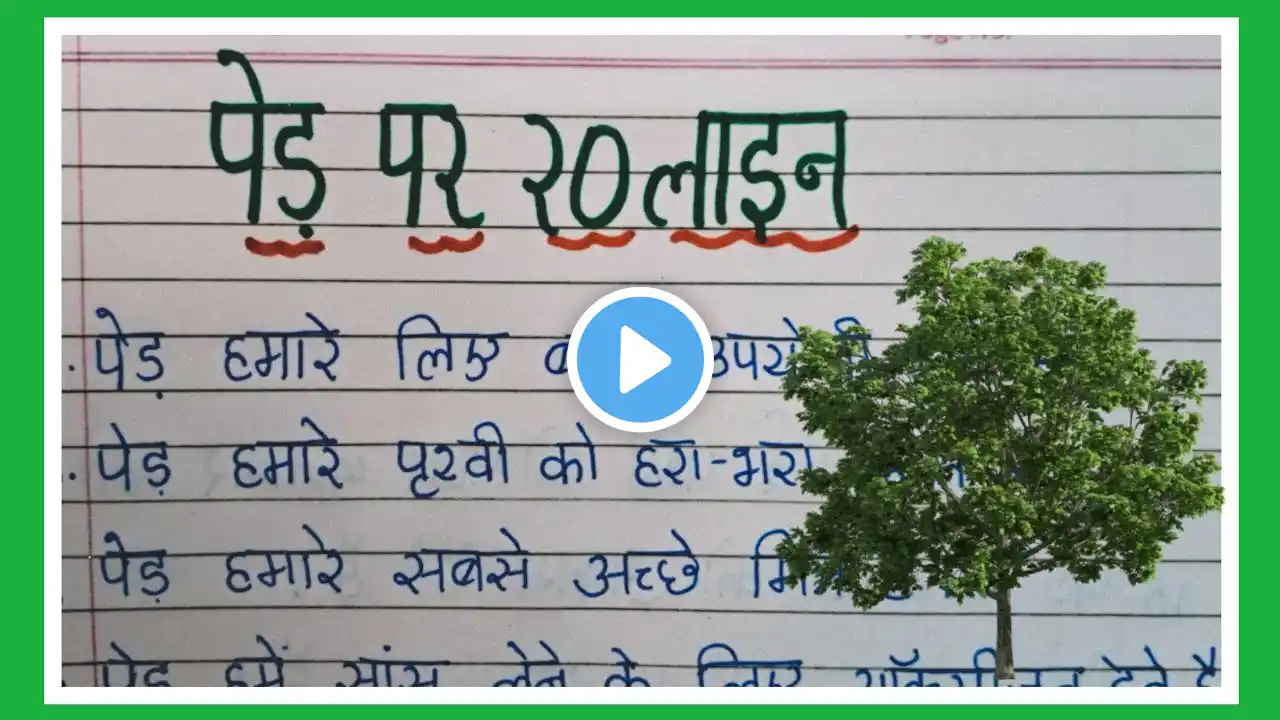 पेड़ पर २० लाइन
पेड़ हमारे लिए
पेड़ हमारे पृथ्वी को हरा-भरा
पेड़ हमारे सबसे अच्छे
पेड़ हमें सांस लेने के लिए ऑक्सीजन देते है